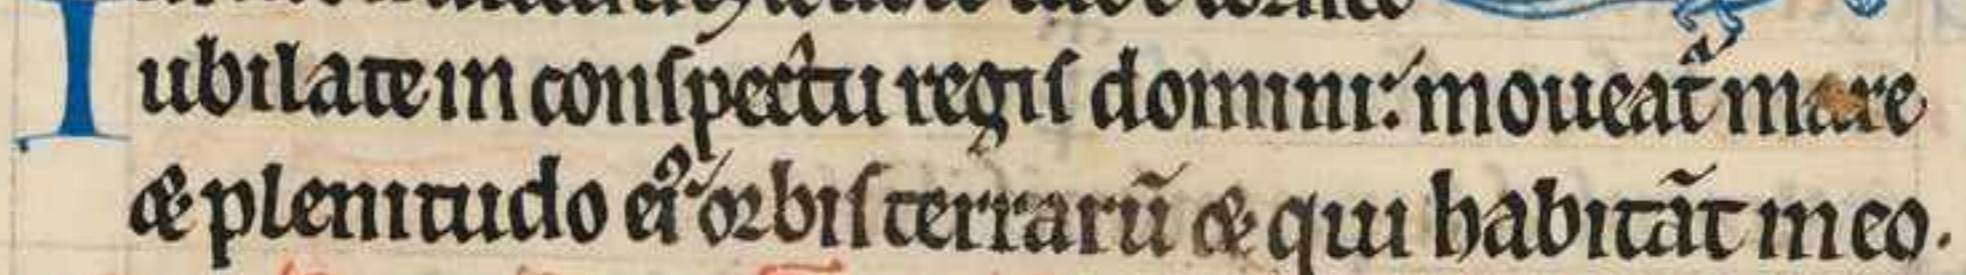 Iubilate in conſpectu regiſ domini: moueat᷑ mare
& plenitudo ei⁹ orbiſ terrarū & qui habitāt in eo.